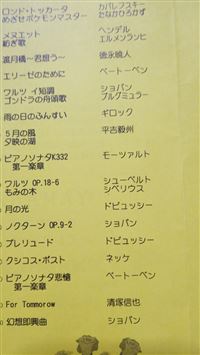 ロンド・トッカータ カバレフスキー
めざせポケモンマスター たなかひろかず
メヌエット ヘンデル
紡ぎ歌 エルメンライヒ
渡月橋〜君想う〜 徳永暁人
エリーゼのために ベートーベン
ワルツ イ短調 ショパン
ゴンドラの舟頭歌 ブルグミュラー
雨の日のふんすい ギロック
5月の風 平吉毅州
夕映の湖
ピアノソナタK332 モーツァルト
第一楽章
ワルツ OP.18-6 シューベルト
もみの木 シベリウス
月の光 ドビュッシー
ノクターン OP.9-2 ショパン
プレリュード ドビュッシー
クシコス・ポスト ネッケ
ピアノソナタ悲愴 ベートーベン
第一楽章
For Tommorow 清塚信也
幻想即興曲 ショパン